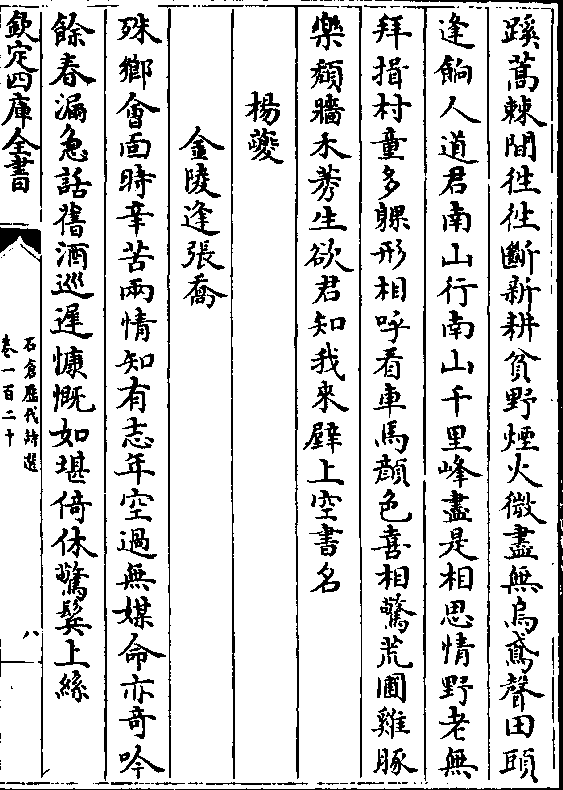 蹊蒿棘間徃徃斷新耕貧野煙火微盡無烏鳶聲田頭
逢餉人道君南山行南山千里峰盡是相思情野老無
拜揖村童多躶形相呼看車馬顔色喜相驚荒圃雞豚
樂頽牆禾莠生欲君知我來壁上空書名
楊夔
金陵逢張喬
殊鄉會面時辛苦兩情知有志年空過無媒命亦竒吟
餘春漏急話舊酒巡遲慷慨如堪倚休驚鬢上絲
欽定四庫全書
石倉歷代詩選
卷一百二十
八